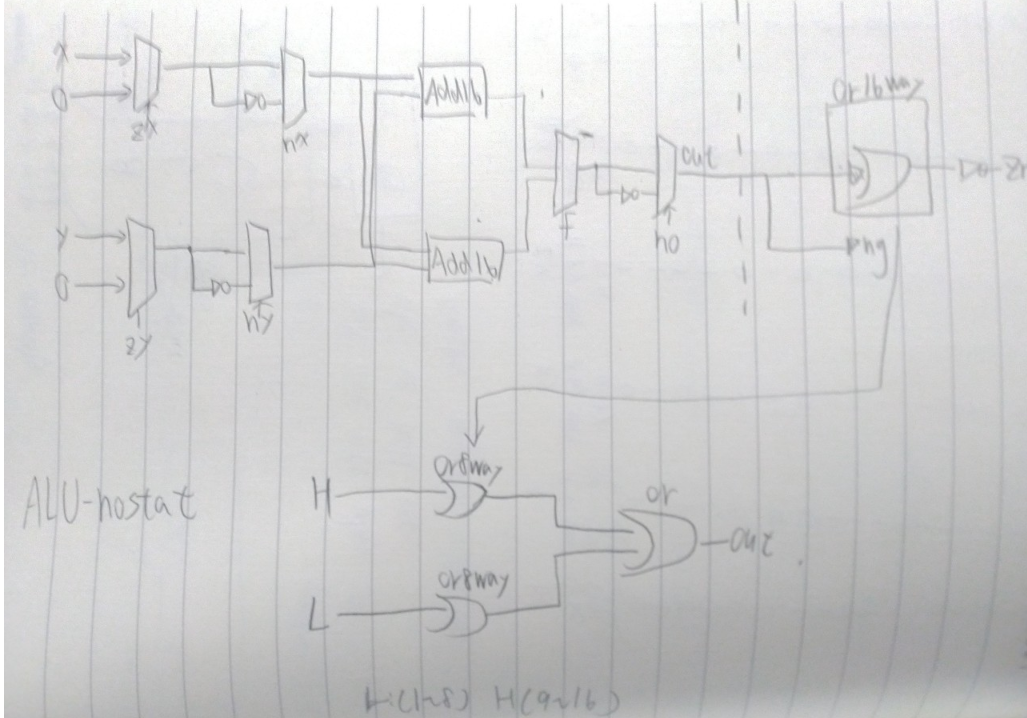 x
0
zx
nx
Add16
y
0
zy
ny
Add16
f
no
out
Or16way
zr
ng
ALU-nostat
H
or8way
L
or8way
or
out
L:(1~8) H(9~16)